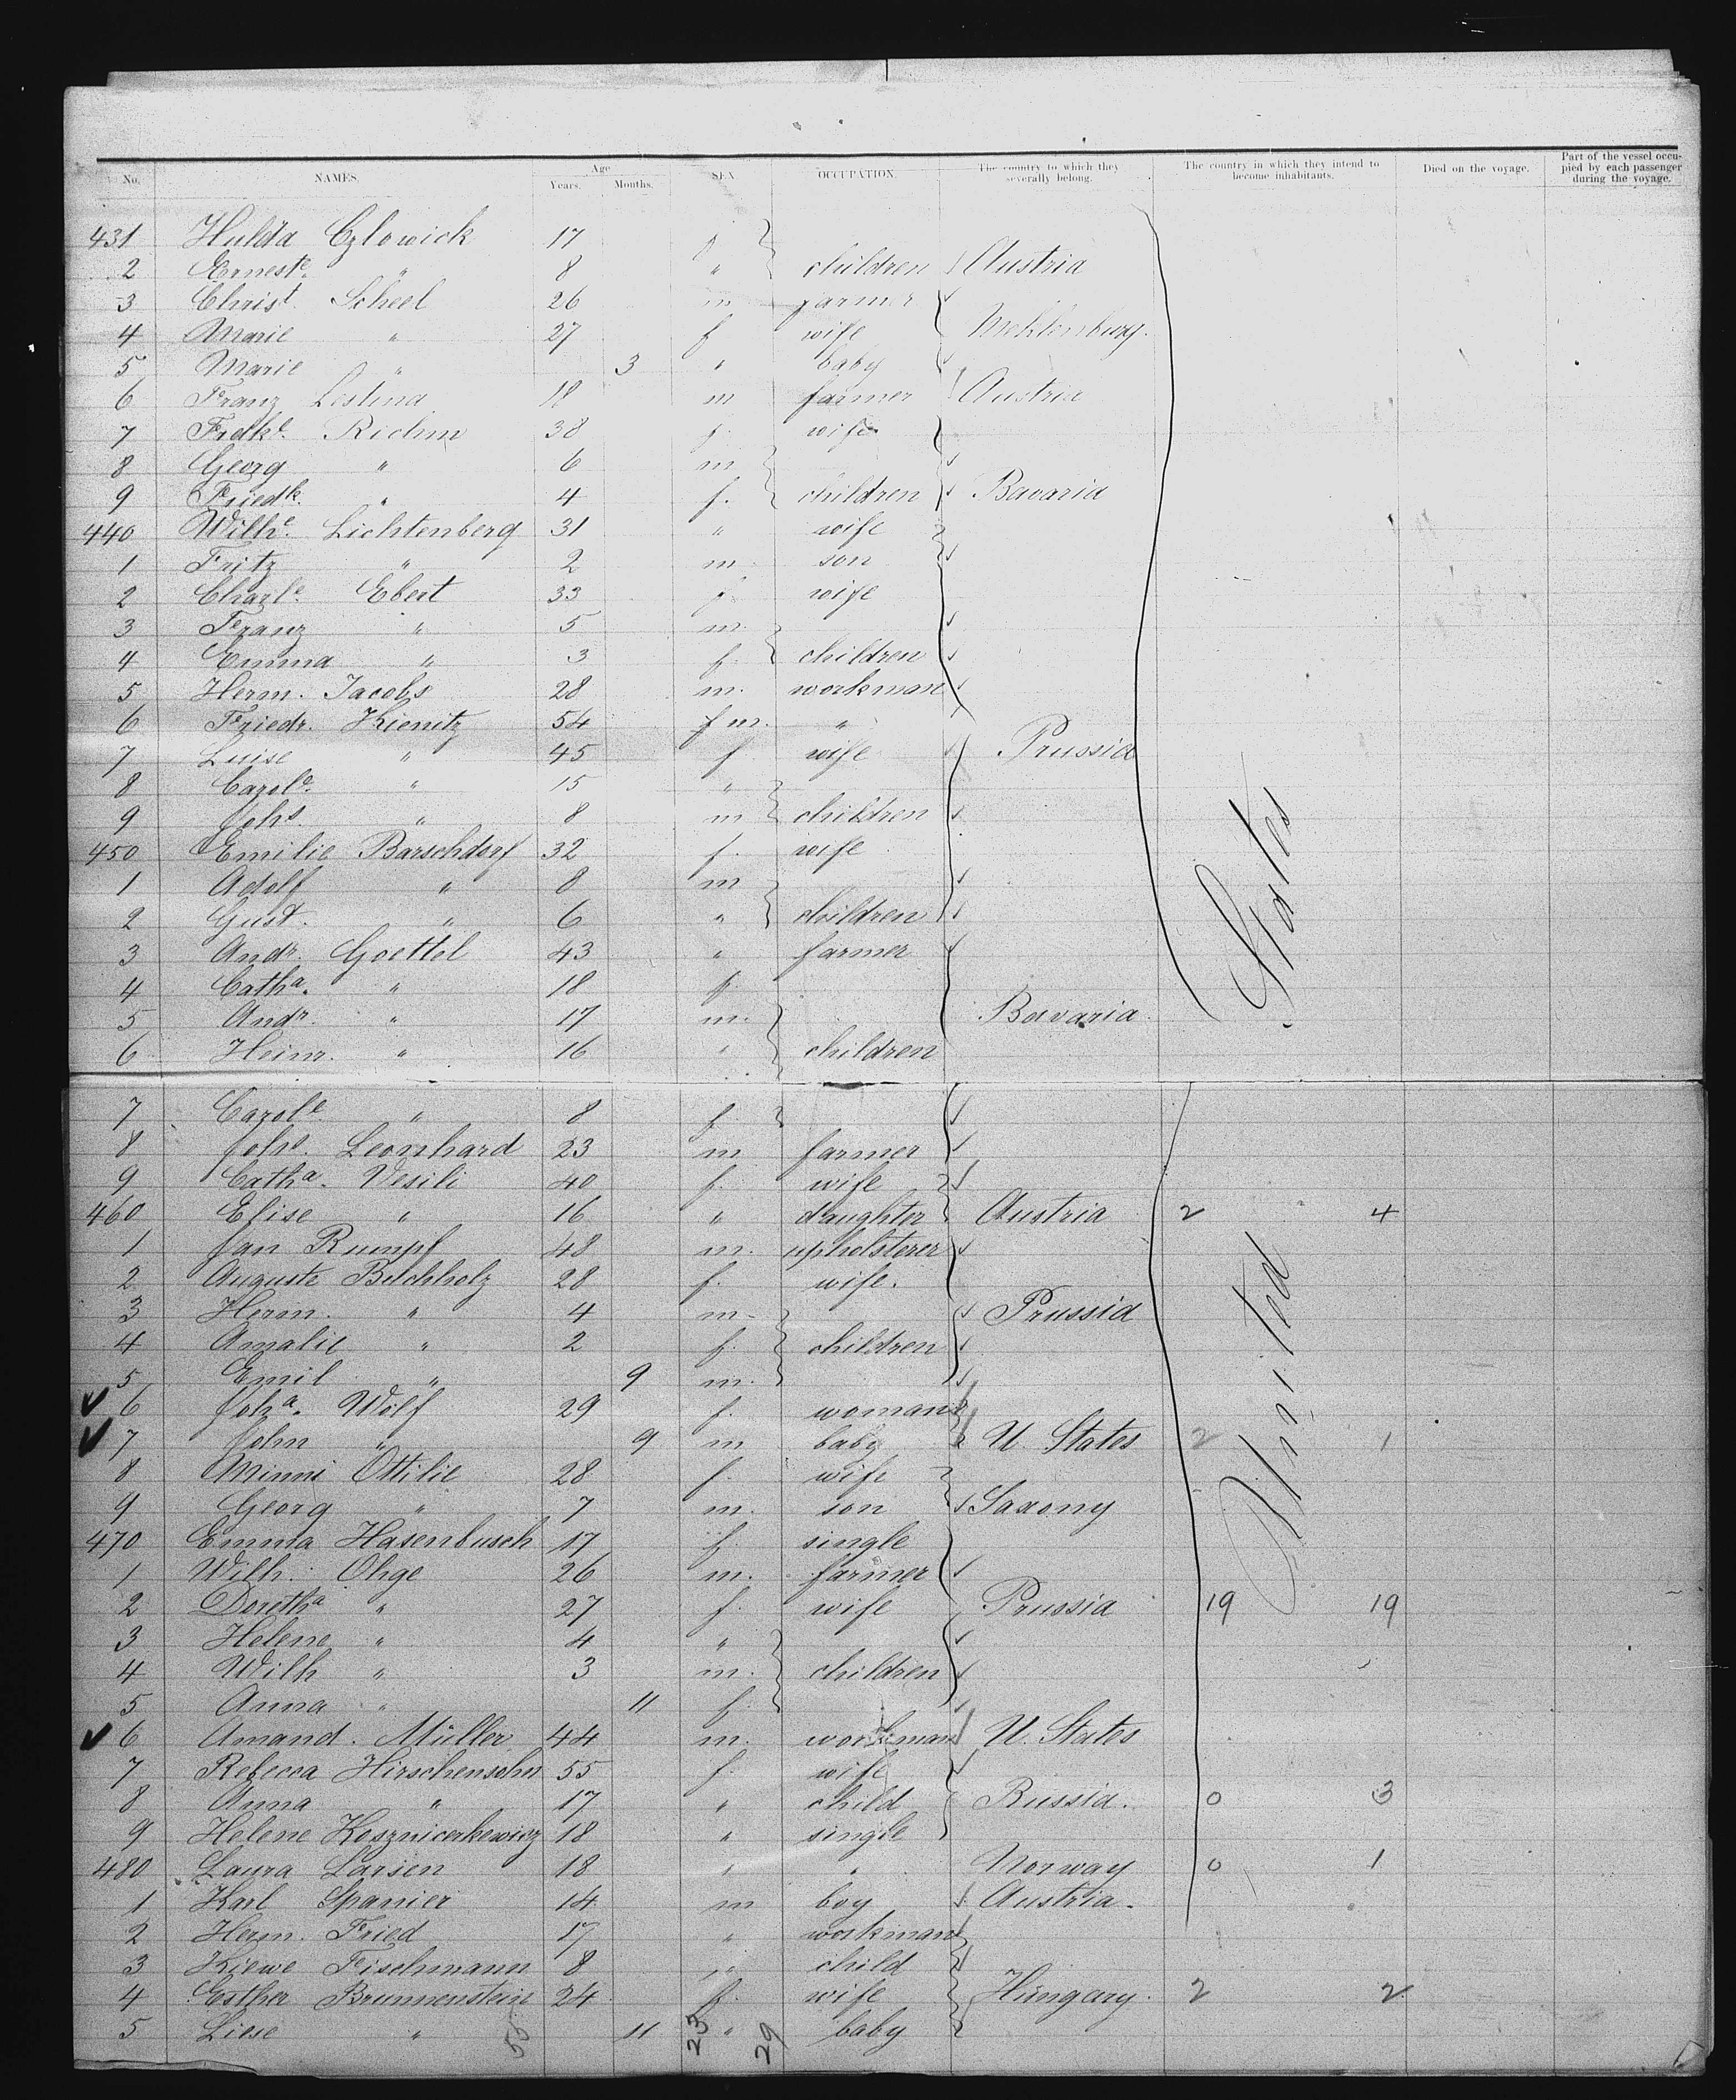 No. NAMES. Age Years. Months. SEX OCCUPATION. The country to which they severally belong. The country in which they intend to become inhabitants. Died on the voyage. Part of the vessel occupied by each passenger during the voyage.
431 Hulda Czlowick 17 f
2 Erneste " 8 " children Austria
3 Christ. Scheel 26 m farmer
4 Marie " 27 f wife Meklenburg.
5 Marie " 3 " baby
6 Franz Lestina 18 m farmer Austria
7 Fredke. Richm 38 f. wife
8 Georg " 6 m
9 Friedk. " 4 f. children Bavaria
440 Wilhe. Lichtenberg 31 " wife
1 Fritz " 2 m son
2 Charle. Ebert 33 f wife
3 Franz " 5 m.
4 Emma " 3 f. children
5 Herm. Jacobs 28 m. workman
6 Friedr. Kienitz 54 f m. "
7 Luise " 45 f wife Prussia
8 Carole. " 15 "
9 Johs. " 8 m children
450 Emilie Barschdorf 32 f. wife
1 Adolf " 8 m
2 Gust. " 6 " children
3 Andr. Goettel 43 " farmer
4 Catha. " 18 f
5 Andr. " 17 m. Bavaria.
6 Heinr. " 16 " children
7 Carole " 8 f.
8 Johs. Leonhard 23 m farmer
9 Catha. Vesili 40 f. wife
460 Elise " 16 " daughter Austria 2 4
1 Jan Rumpf 48 m. upholsterer
2 Auguste Buchholz 28 f. wife.
3 Herm. " 4 m. Prussia
4 Amalie " 2 f. children
5 Emil " 9 m.
6 Joha. Wolf 29 f. woman
7 John " 9 m baby U. States 2 1
8 Minni Ottilie 28 f. wife
9 Georg " 7 m. son Saxony
470 Emma Hasenbusch 17 f. single
1 Wilh. Ohge 26 m. farmer
2 Doretha " 27 f. wife Prussia 19 19
3 Helene " 4 "
4 Wilh " 3 m. children
5 Anna " 11 f.
6 Amand. Müller 44 m. workman U. States
7 Rebecca Hirschensohn 55 f. wife
8 Anna " 17 " child Russia. 0 3
9 Helene Kosznicerkewicz 18 " single
480 Laura Larsen 18 " " Norway 0 1
1 Karl Spanier 14 m boy Austria.
2 Herm. Fried 17 " workman
3 Kiewe Fischmann 8 " child
4 Esther Brunnenstein 24 f. wife Hungary. 2 2
5 Liese " 11 " baby
United States
58 23 29